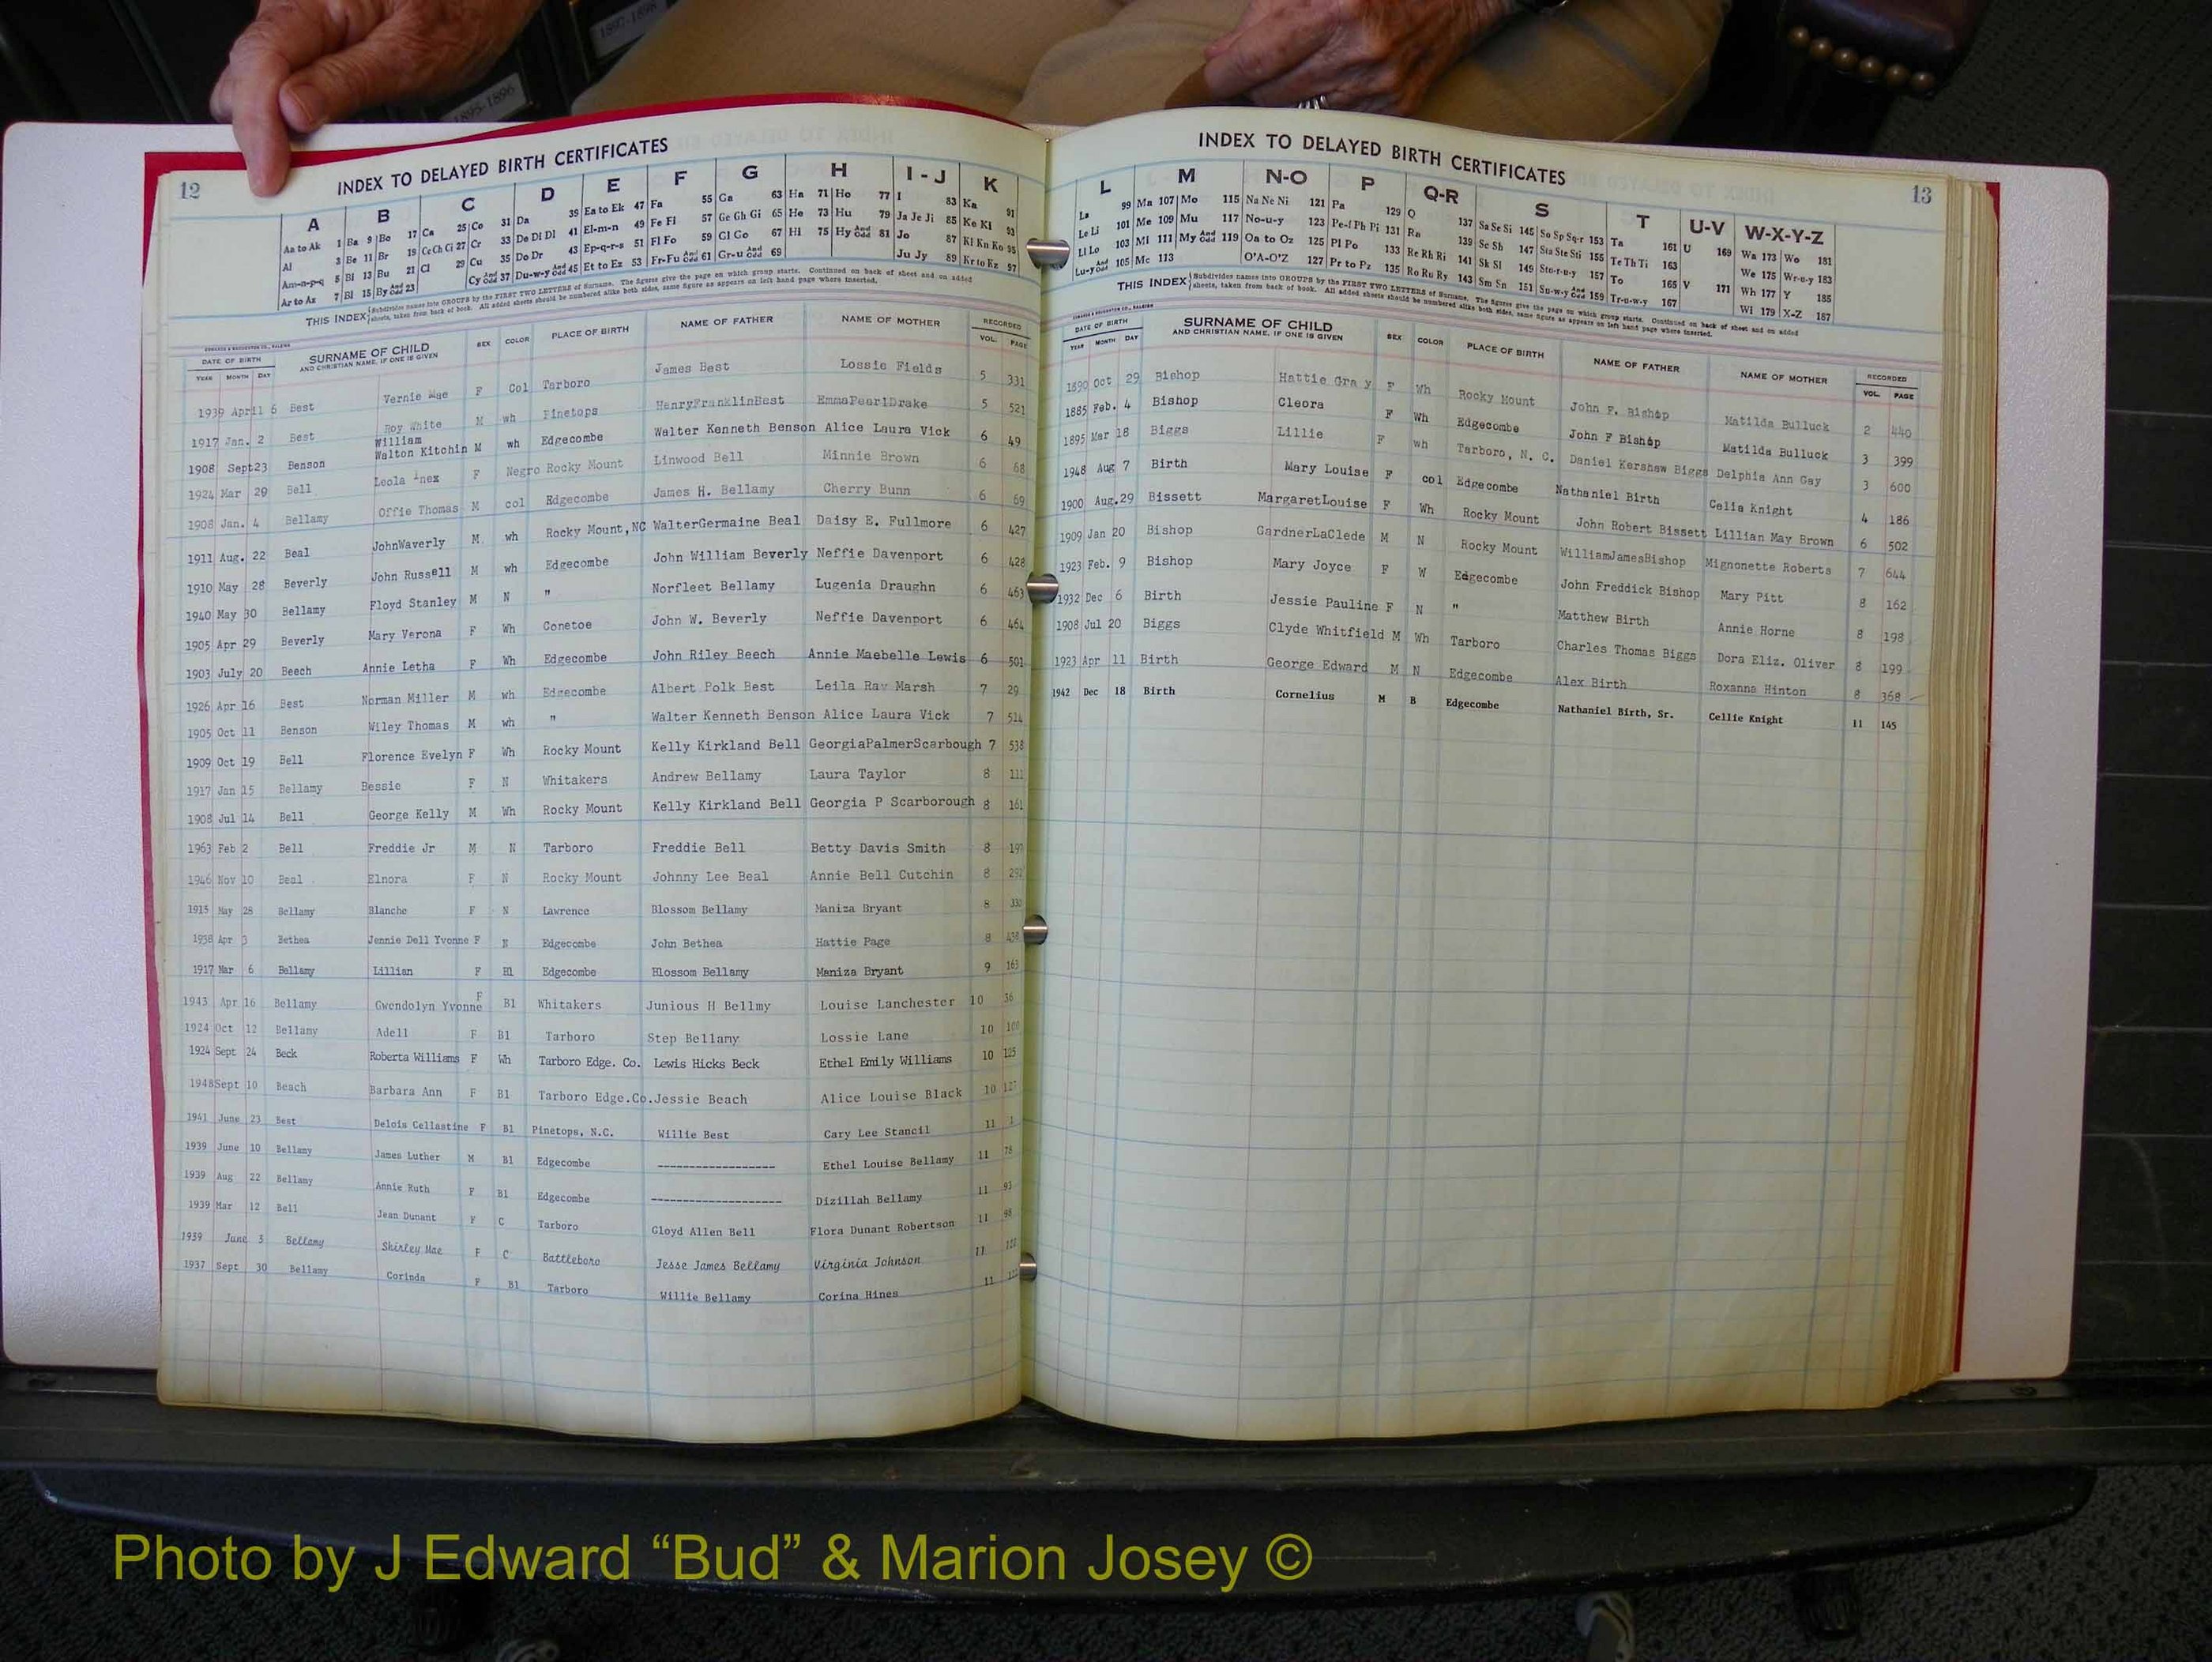 1897-1898
1895-1896
12
INDEX TO DELAYED BIRTH CERTIFICATES
A B C D E F G H I - J K
Aa to Ak 1 Ba 9 Bo 17 Ca 25 Co 31 Da 39 Ea to Ek 47 Fa 55 Ga 63 Ha 71 Ho 77 I 83 Ka 91
Al 3 Be 11 Br 19 Ce Ch Ci 27 Cr 33 De Di Dl 41 El-m-n 49 Fe Fi 57 Ge Gh Gi 65 He 73 Hu 79 Ja Je Ji 85 Ke Ki 93
Am-n-p-q 5 Bi 13 Bu 21 Cl 29 Cu 35 Do Dr 43 Ep-q-r-s 51 Fl Fo 59 Gl Go 67 Hi 75 Hy And Odd 81 Jo 87 Kl Kn Ko 95
Ar to Az 7 Bl 15 By And Odd 23 Cy And Odd 37 Du-w-y And Odd 45 Et to Ez 53 Fr-Fu And Odd 61 Gr-u And Odd 69 Ju Jy 89 Kr to Kz 97
THIS INDEX Subdivides names into GROUPS by the FIRST TWO LETTERS of Surname. The figures give the page on which group starts. Continued on back of sheet and on added
sheets, taken from back of book. All added sheets should be numbered alike both sides, same figure as appears on left hand page where inserted.
DATE OF BIRTH SURNAME OF CHILD SEX COLOR PLACE OF BIRTH NAME OF FATHER NAME OF MOTHER RECORDED
YEAR MONTH DAY AND CHRISTIAN NAME, IF ONE IS GIVEN VOL. PAGE
1939 April 6 Best Vernie Mae F Col Tarboro James Best Lossie Fields 5 331
1917 Jan. 2 Best Roy White M wh Pinetops HenryFranklinBest EmmaPearlDrake 5 521
1908 Sept23 Benson William Walton Kitchin M wh Edgecombe Walter Kenneth Benson Alice Laura Vick 6 49
1924 Mar 29 Bell Leola Inex F Negro Rocky Mount Linwood Bell Minnie Brown 6 68
1908 Jan. 4 Bellamy Offie Thomas M col Edgecombe James H. Bellamy Cherry Bunn 6 69
1911 Aug. 22 Beal JohnWaverly M. wh Rocky Mount,NC WalterGermaine Beal Daisy E. Fullmore 6 427
1910 May 28 Beverly John Russell M wh Edgecombe John William Beverly Neffie Davenport 6 428
1940 May 30 Bellamy Floyd Stanley M N " Norfleet Bellamy Lugenia Draughn 6 463
1905 Apr 29 Beverly Mary Verona F Wh Conetoe John W. Beverly Neffie Davenport 6 464
1903 July 20 Beech Annie Letha F Wh Edgecombe John Riley Beech Annie Maebelle Lewis 6 501
1926 Apr 16 Best Norman Miller M wh Edgecombe Albert Polk Best Leila Ray Marsh 7 29
1905 Oct 11 Benson Wiley Thomas M wh " Walter Kenneth Benson Alice Laura Vick 7 514
1909 Oct 19 Bell Florence Evelyn F Wh Rocky Mount Kelly Kirkland Bell GeorgiaPalmerScarbough 7 538
1917 Jan 15 Bellamy Bessie F N Whitakers Andrew Bellamy Laura Taylor 8 111
1908 Jul 14 Bell George Kelly M Wh Rocky Mount Kelly Kirkland Bell Georgia P Scarborough 8 161
1963 Feb 2 Bell Freddie Jr M N Tarboro Freddie Bell Betty Davis Smith 8
1946 Nov 10 Beal Elnora F N Rocky Mount Johnny Lee Beal Annie Bell Cutchin 8
1915 May 28 Bellamy Blanche F N Lawrence Blossom Bellamy Maniza Bryant 8
1958 Apr 3 Bethea Jennie Dell Yvonne F N Edgecombe John Bethea Hattie Page 8
1917 Mar 6 Bellamy Lillian F Bl Edgecombe Blossom Bellamy Maniza Bryant 9 163
1943 Apr 16 Bellamy Gwendolyn Yvonne F Bl Whitakers Junious H Bellmy Louise Lanchester 10 36
1924 Oct 12 Bellamy Adell F Bl Tarboro Step Bellamy Lossie Lane 10
1924 Sept 24 Beck Roberta Williams F Wh Tarboro Edge. Co. Lewis Hicks Beck Ethel Emily Williams 10 125
1948Sept 10 Beach Barbara Ann F Bl Tarboro Edge.Co. Jessie Beach Alice Louise Black 10 127
1941 June 23 Best Delois Cellastine F Bl Pinetops, N.C. Willie Best Cary Lee Stancil 11
1939 June 10 Bellamy James Luther M Bl Edgecombe ------------------ Ethel Louise Bellamy 11 78
1939 Aug 22 Bellamy Annie Ruth F Bl Edgecombe -------------------- Dizillah Bellamy 11 93
1939 Mar 12 Bell Jean Dunant F C Tarboro Gloyd Allen Bell Flora Dunant Robertson 11 98
1939 June 3 Bellamy Shirley Mae F C Battleboro Jesse James Bellamy Virginia Johnson 11
1937 Sept 30 Bellamy Corinda F Bl Tarboro Willie Bellamy Corina Hines 11
INDEX TO DELAYED BIRTH CERTIFICATES
13
L M N-O P Q-R S T U-V W-X-Y-Z
La 99 Ma 107 Mo 115 Na Ne Ni 121 Pa 129 Q 137 Sa Se Si 145 So Sp Sq-r 153 Ta 161 U 169 Wa 173 Wo 181
Le Li 101 Me 109 Mu 117 No-u-y 123 Pe-f Ph Pi 131 Ra 139 Sc Sh 147 Sta Ste Sti 155 Te Th Ti 163 We 175 Wr-u-y 183
Ll Lo 103 Mi 111 My And Odd 119 Oa to Oz 125 Pl Po 133 Re Rh Ri 141 Sk Sl 149 Sto-r-u-y 157 To 165 V 171 Wh 177 Y 185
Lu-y And Odd 105 Mc 113 O'A-O'Z 127 Pr to Pz 135 Ro Ru Ry 143 Sm Sn 151 Su-w-y And Odd 159 Tr-u-w-y 167 Wi 179 X-Z 187
THIS INDEX Subdivides names into GROUPS by the FIRST TWO LETTERS of Surname. The figures give the page on which group starts. Continued on back of sheet and on added
sheets, taken from back of book. All added sheets should be numbered alike both sides, same figure as appears on left hand page where inserted.
DATE OF BIRTH SURNAME OF CHILD SEX COLOR PLACE OF BIRTH NAME OF FATHER NAME OF MOTHER RECORDED
YEAR MONTH DAY AND CHRISTIAN NAME, IF ONE IS GIVEN VOL. PAGE
1890 Oct 29 Bishop Hattie Gra y F Wh Rocky Mount John F. Bishop Matilda Bulluck 2 440
1885 Feb. 4 Bishop Cleora F Wh Edgecombe John F Bishop Matilda Bulluck 3 399
1895 Mar 18 Biggs Lillie F wh Tarboro, N. C. Daniel Kershaw Biggs Delphia Ann Gay 3 600
1948 Aug 7 Birth Mary Louise F col Edgecombe Nathaniel Birth Celia Knight 4 186
1900 Aug.29 Bissett MargaretLouise F Wh Rocky Mount John Robert Bissett Lillian May Brown 6 502
1909 Jan 20 Bishop GardnerLaClede M N Rocky Mount WilliamJamesBishop Mignonette Roberts 7 644
1923 Feb. 9 Bishop Mary Joyce F W Edgecombe John Freddick Bishop Mary Pitt 8 162
1932 Dec 6 Birth Jessie Pauline F N " Matthew Birth Annie Horne 8 198
1908 Jul 20 Biggs Clyde Whitfield M Wh Tarboro Charles Thomas Biggs Dora Eliz. Oliver 8 199
1923 Apr 11 Birth George Edward M N Edgecombe Alex Birth Roxanna Hinton 8 368
1942 Dec 18 Birth Cornelius M B Edgecombe Nathaniel Birth, Sr. Cellie Knight 11 145
Photo by J Edward “Bud” & Marion Josey ©